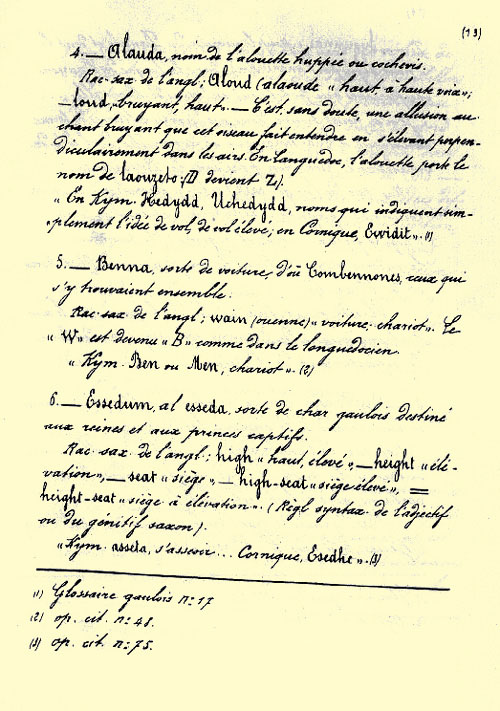 (13)
4. — Alauda, nom de l'alouette huppée ou cochevis.
Rac. sax. de l'angl; Aloud (alaoude « haut, à haute voix»;
— loud, bruyant, haut». — C'est, sans doute, une allusion au
chant bruyant que cet oiseau fait entendre en s'élevant perpen-
diculairement dans les airs. En Languedoc, l'alouette porte le
nom de laouzeto: (D devient Z).
« En Kym. Hedydd, Uchedydd, noms qui indiquent sim-
« plement l'idée de vol, de vol élevé; en Cornique, Ewidit». (1)
5. — Benna, sorte de voiture, d'où Combennones, ceux qui
s'y trouvaient ensemble.
Rac. sax. de l'angl; wain (ouenne) « voiture, chariot». Le
« W» est devenu « B» comme dans le longuedocien.
« Kym. Ben ou Men, chariot». (2)
6. — Essedum, al esseda, sorte de char gaulois destiné
aux reines et aux princes captifs.
Rac. sax. de l'angl; high « haut, élevé», — height « élé-
vation», — seat « siège», — high-seat « siège élevé», =
height-seat « siège à élévation». (Règl. syntax. de l'adjectif
ou du génitif saxon).
« Kym. asseta, s'asseoir... Cornique, Esedhe». (3)
(1) Glossaire gaulois n: 17
(2) op. cit. n: 48.
(3) op. cit. n: 75.